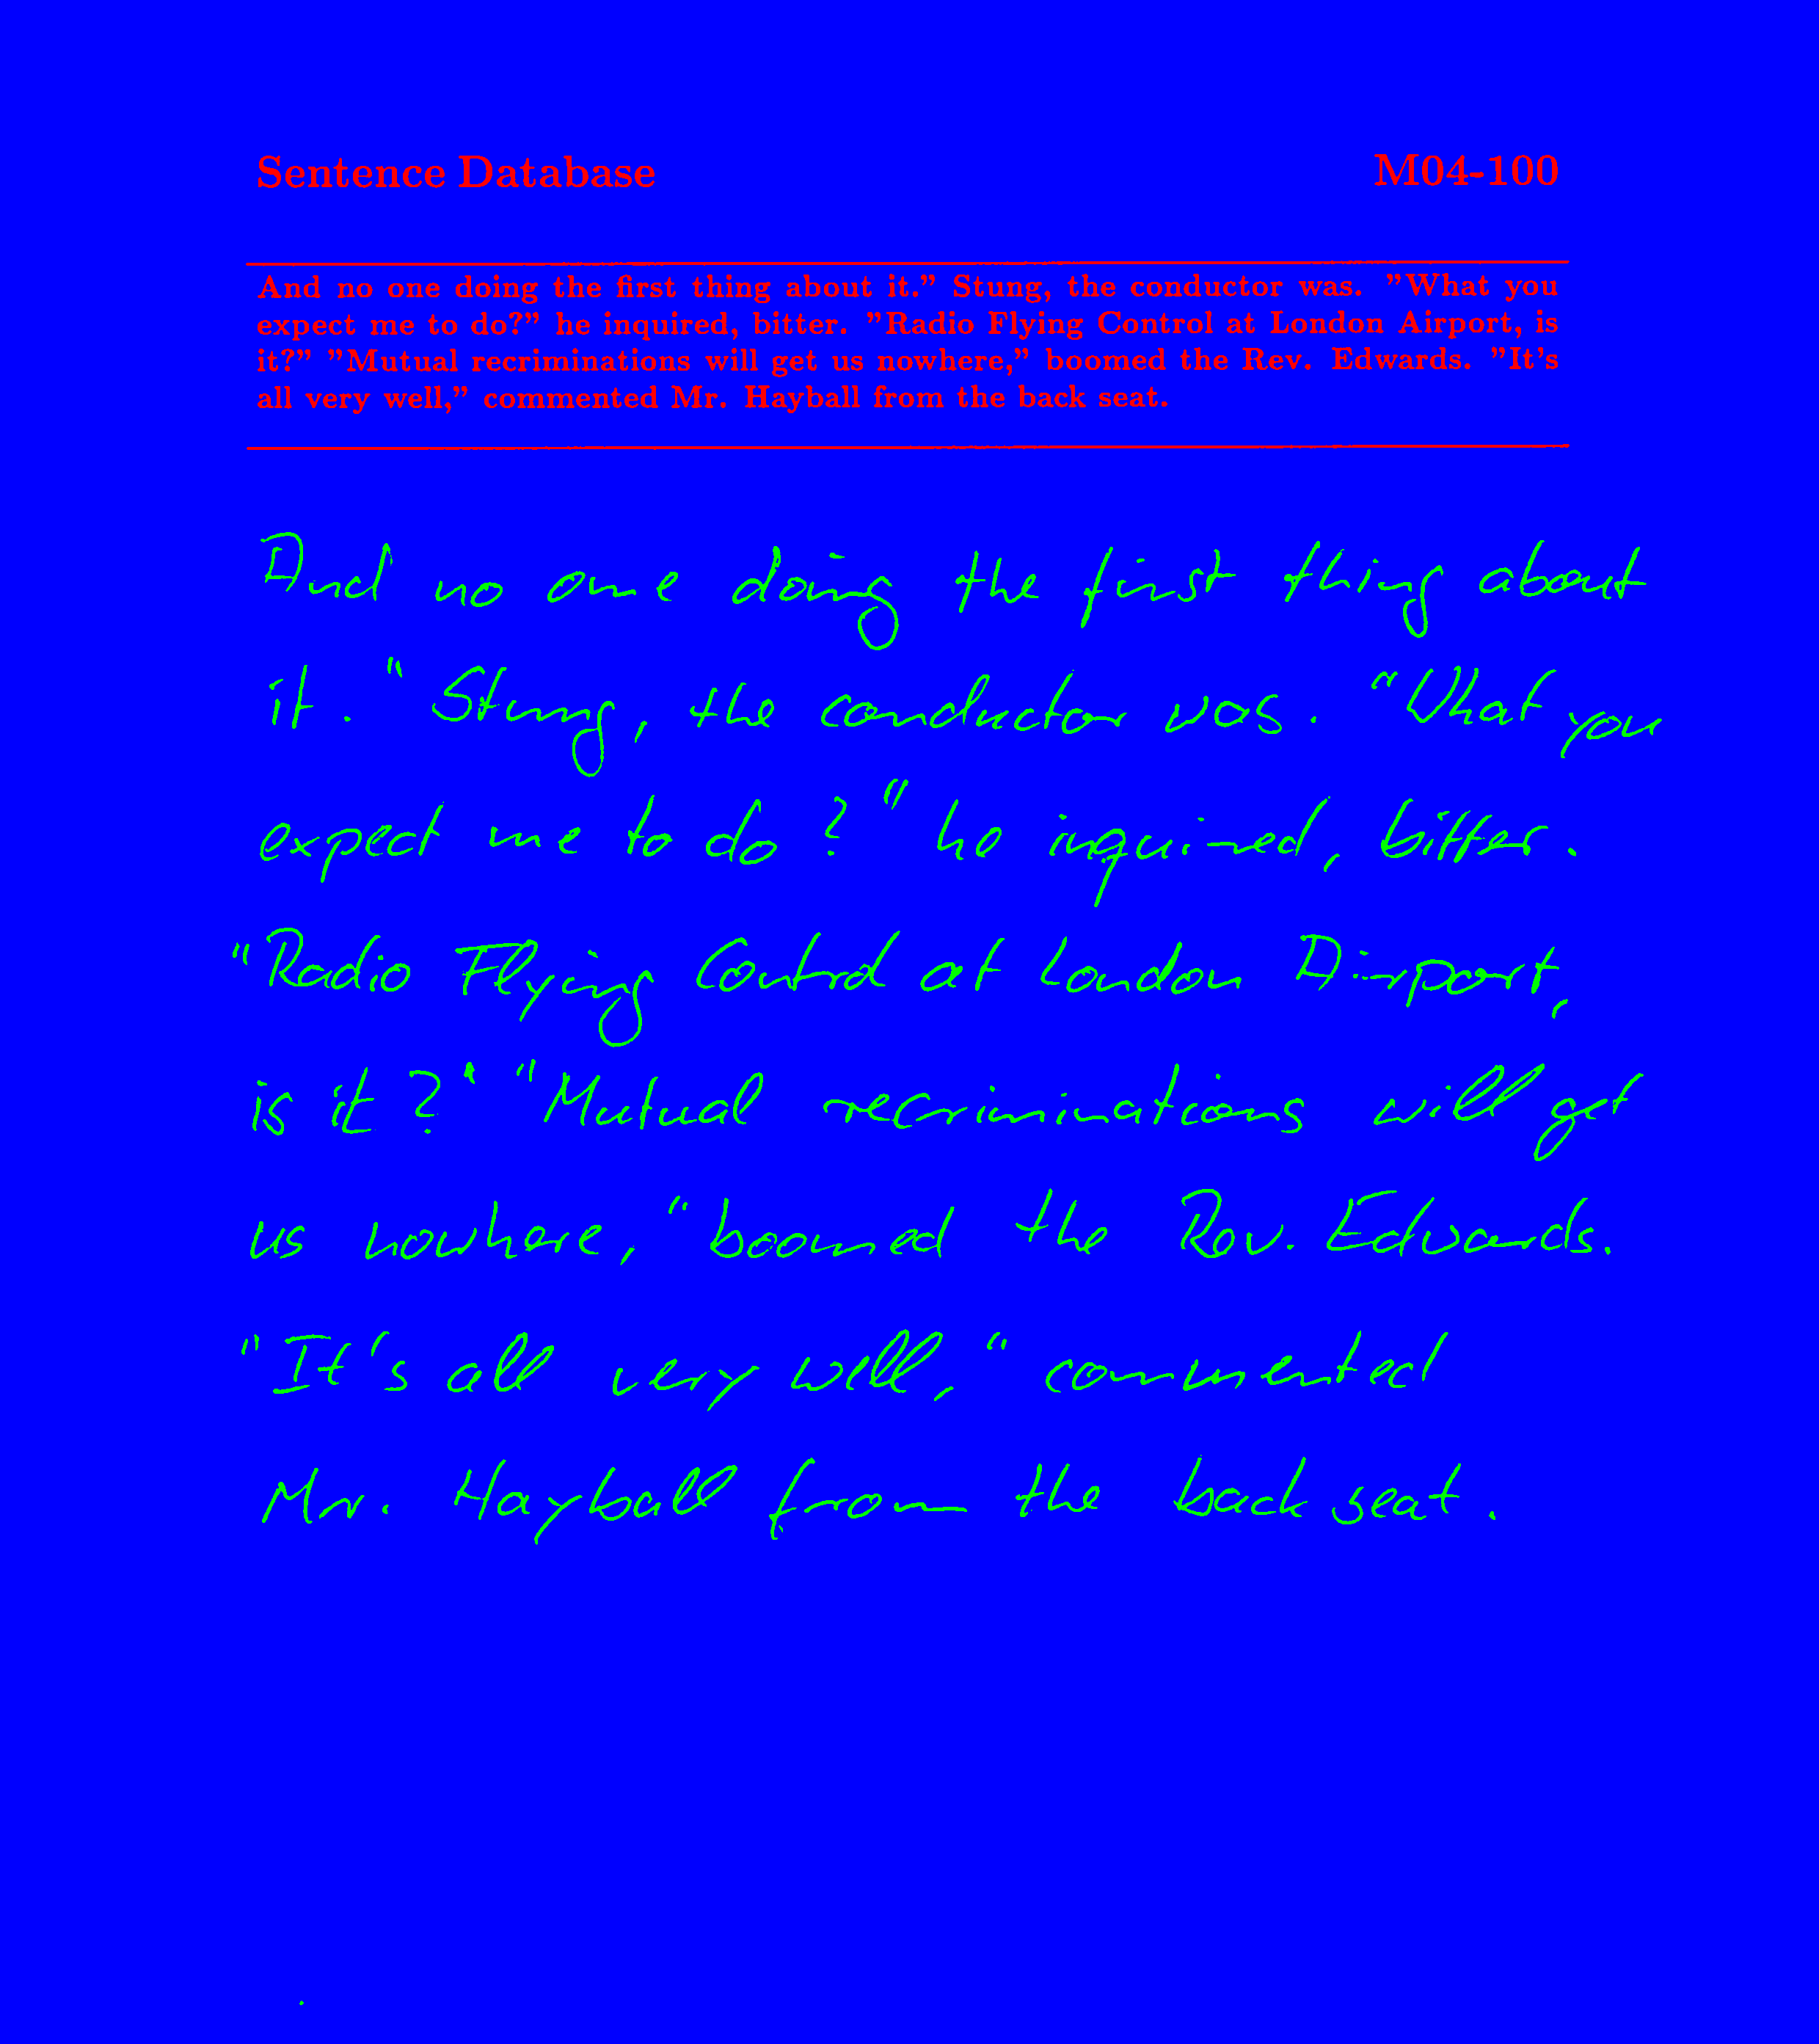 Sentence Database M04-100
And no one doing the first thing about it.” Stung, the conductor was. ”What you
expect me to do?” he inquired, bitter. ”Radio Flying Control at London Airport, is
it?” ”Mutual recriminations will get us nowhere,” boomed the Rev. Edwards. ”It's
all very well,” commented Mr. Hayball from the back seat.
And no one doing the first thing about
it. " Stung, the conductor was. "What you
expect me to do?" he inquired, bitter.
"Radio Flying Control at London Airport,
is it?" "Mutual recriminations will get
us nowhere, "boomed the Rev. Edwards.
"It's all very well," commented
Mr. Hayball from the back seat.